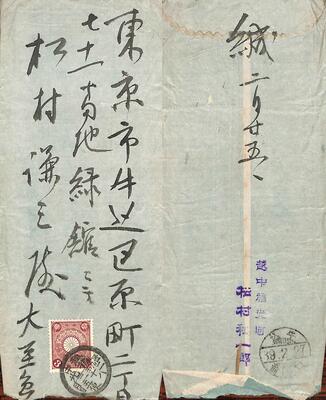 東京市牛込区原町二丁目
七十一番地緑館ニテ
松村謙三殿
大至急
緘
二月廿五、
越中福光町
松村和一郎
39.2.27